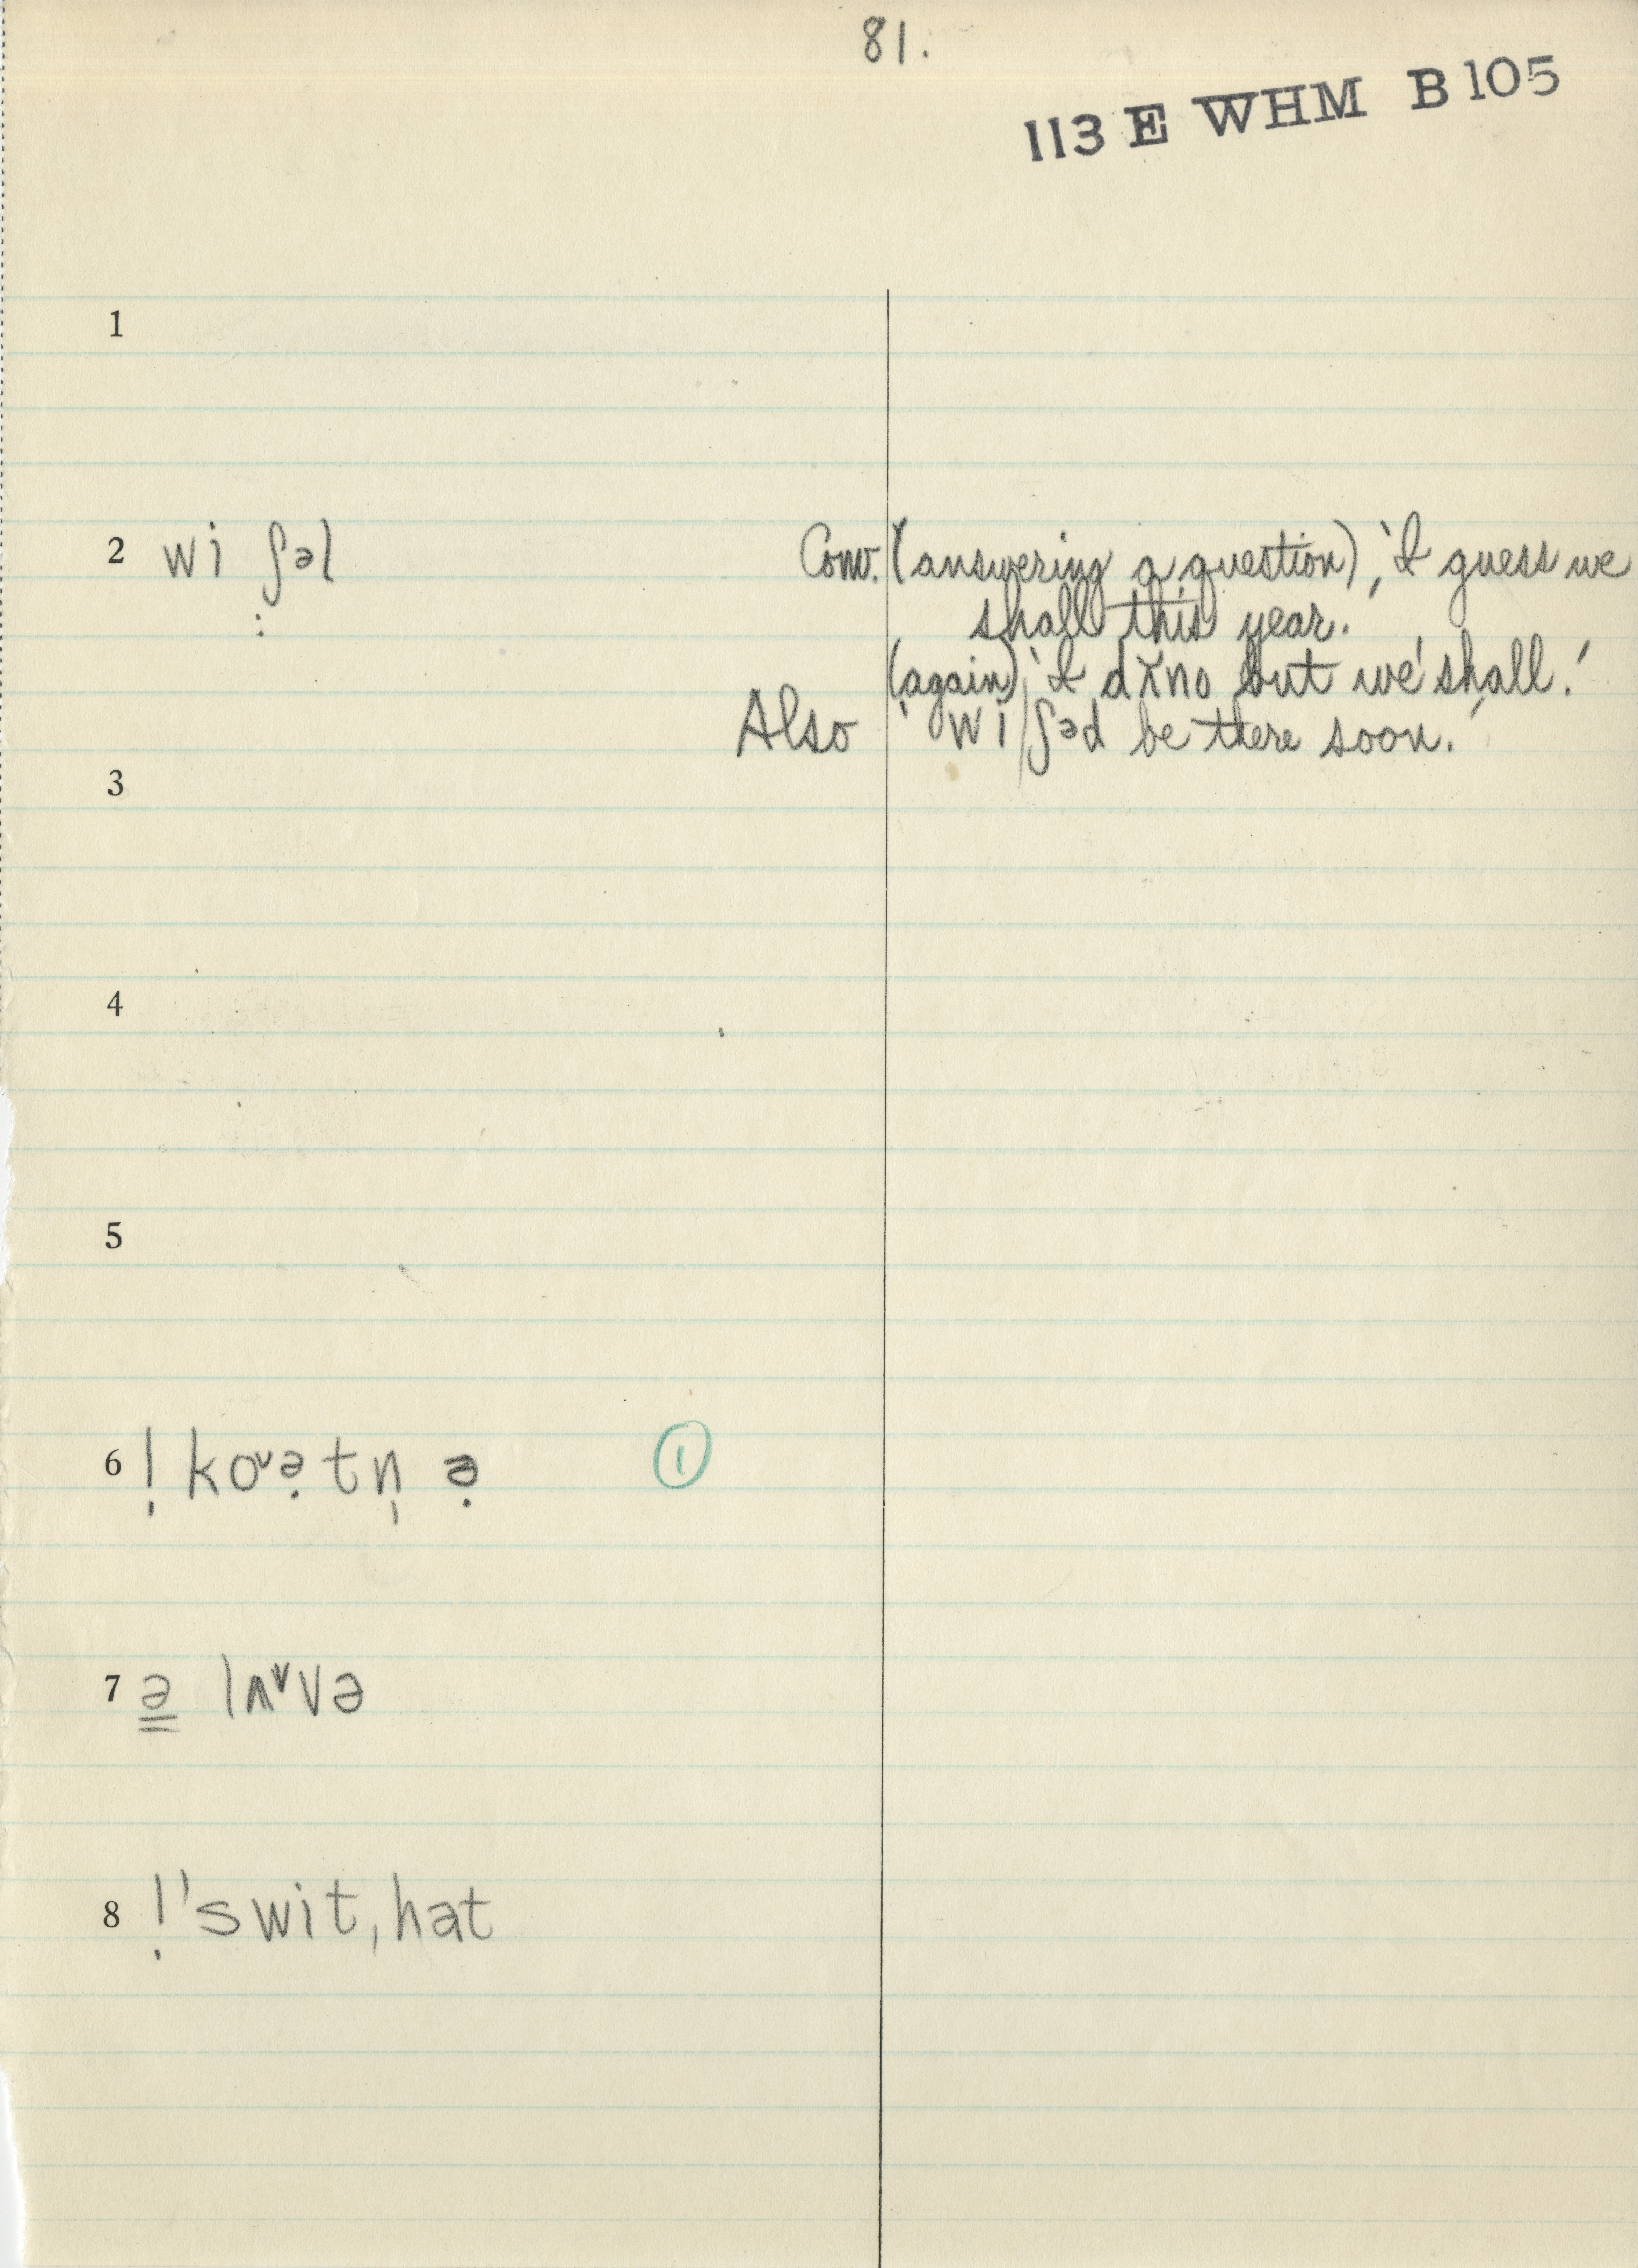 81.
113 E WHM B 105
1
2 wi ʃəl Conv. (answering a question), 'I guess we
shall this year.'
(again) 'I dɤno but we shall.'
Also 'wi ʃəd be there soon.'
3
4
5
6 ! koᵛə̣tn̩ ə̣ ①
7 ə̳ lʌᵛvə
8 !'swit,hat